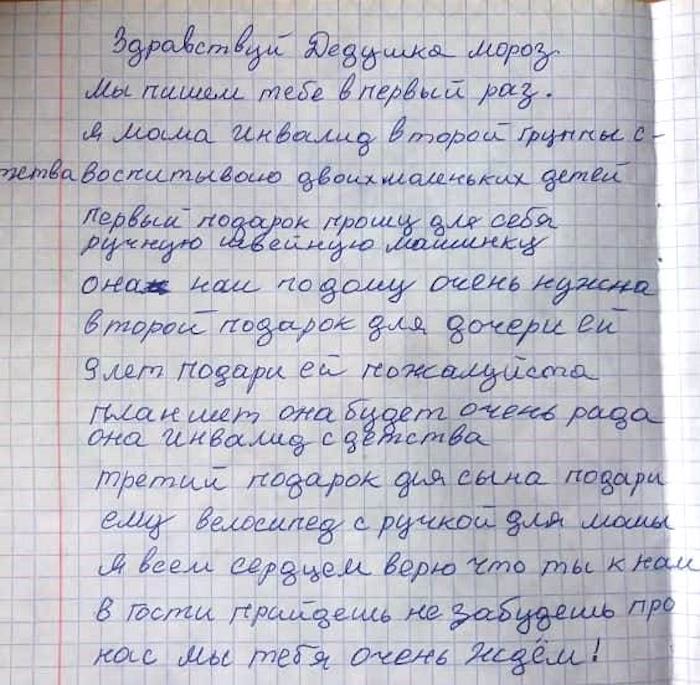 Здравствуй Дедушка мороз.
мы пишем тебе в первый раз.
я мама инвалид второй группы с-
тства воспитываю двоих маленьких детей
первый подарок прошу для себя
ручную швейную машинку
она нам по дому очень нужна
второй подарок для дочери ей
9 лет подари ей пожалуйста
планшет она будет очень рада
она инвалид с детства
третий подарок для сына подари
ему велосипед с ручкой для мамы
я всем сердцем верю что ты к нам
в гости прийдешь не забудешь про
нас мы тебя очень ждём!